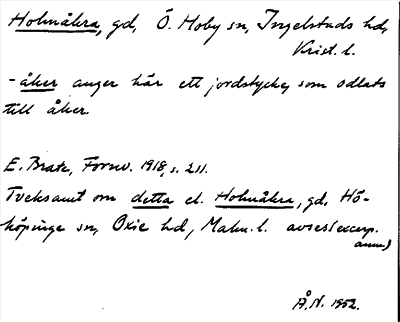 Holmåkra, gd, Ö. Hoby sn, Ingelstads hd,
Krist. l.
-åker anger här ett jordstycke, som odlats
till åker.
E. Brate, Fornv. 1918, s. 211.
Tveksamt om detta el. Holmåkra, gd, Hö-
köpinge sn, Oxie hd, Malm. l. avses (excerp.
anm.)
Å.N. 1952.